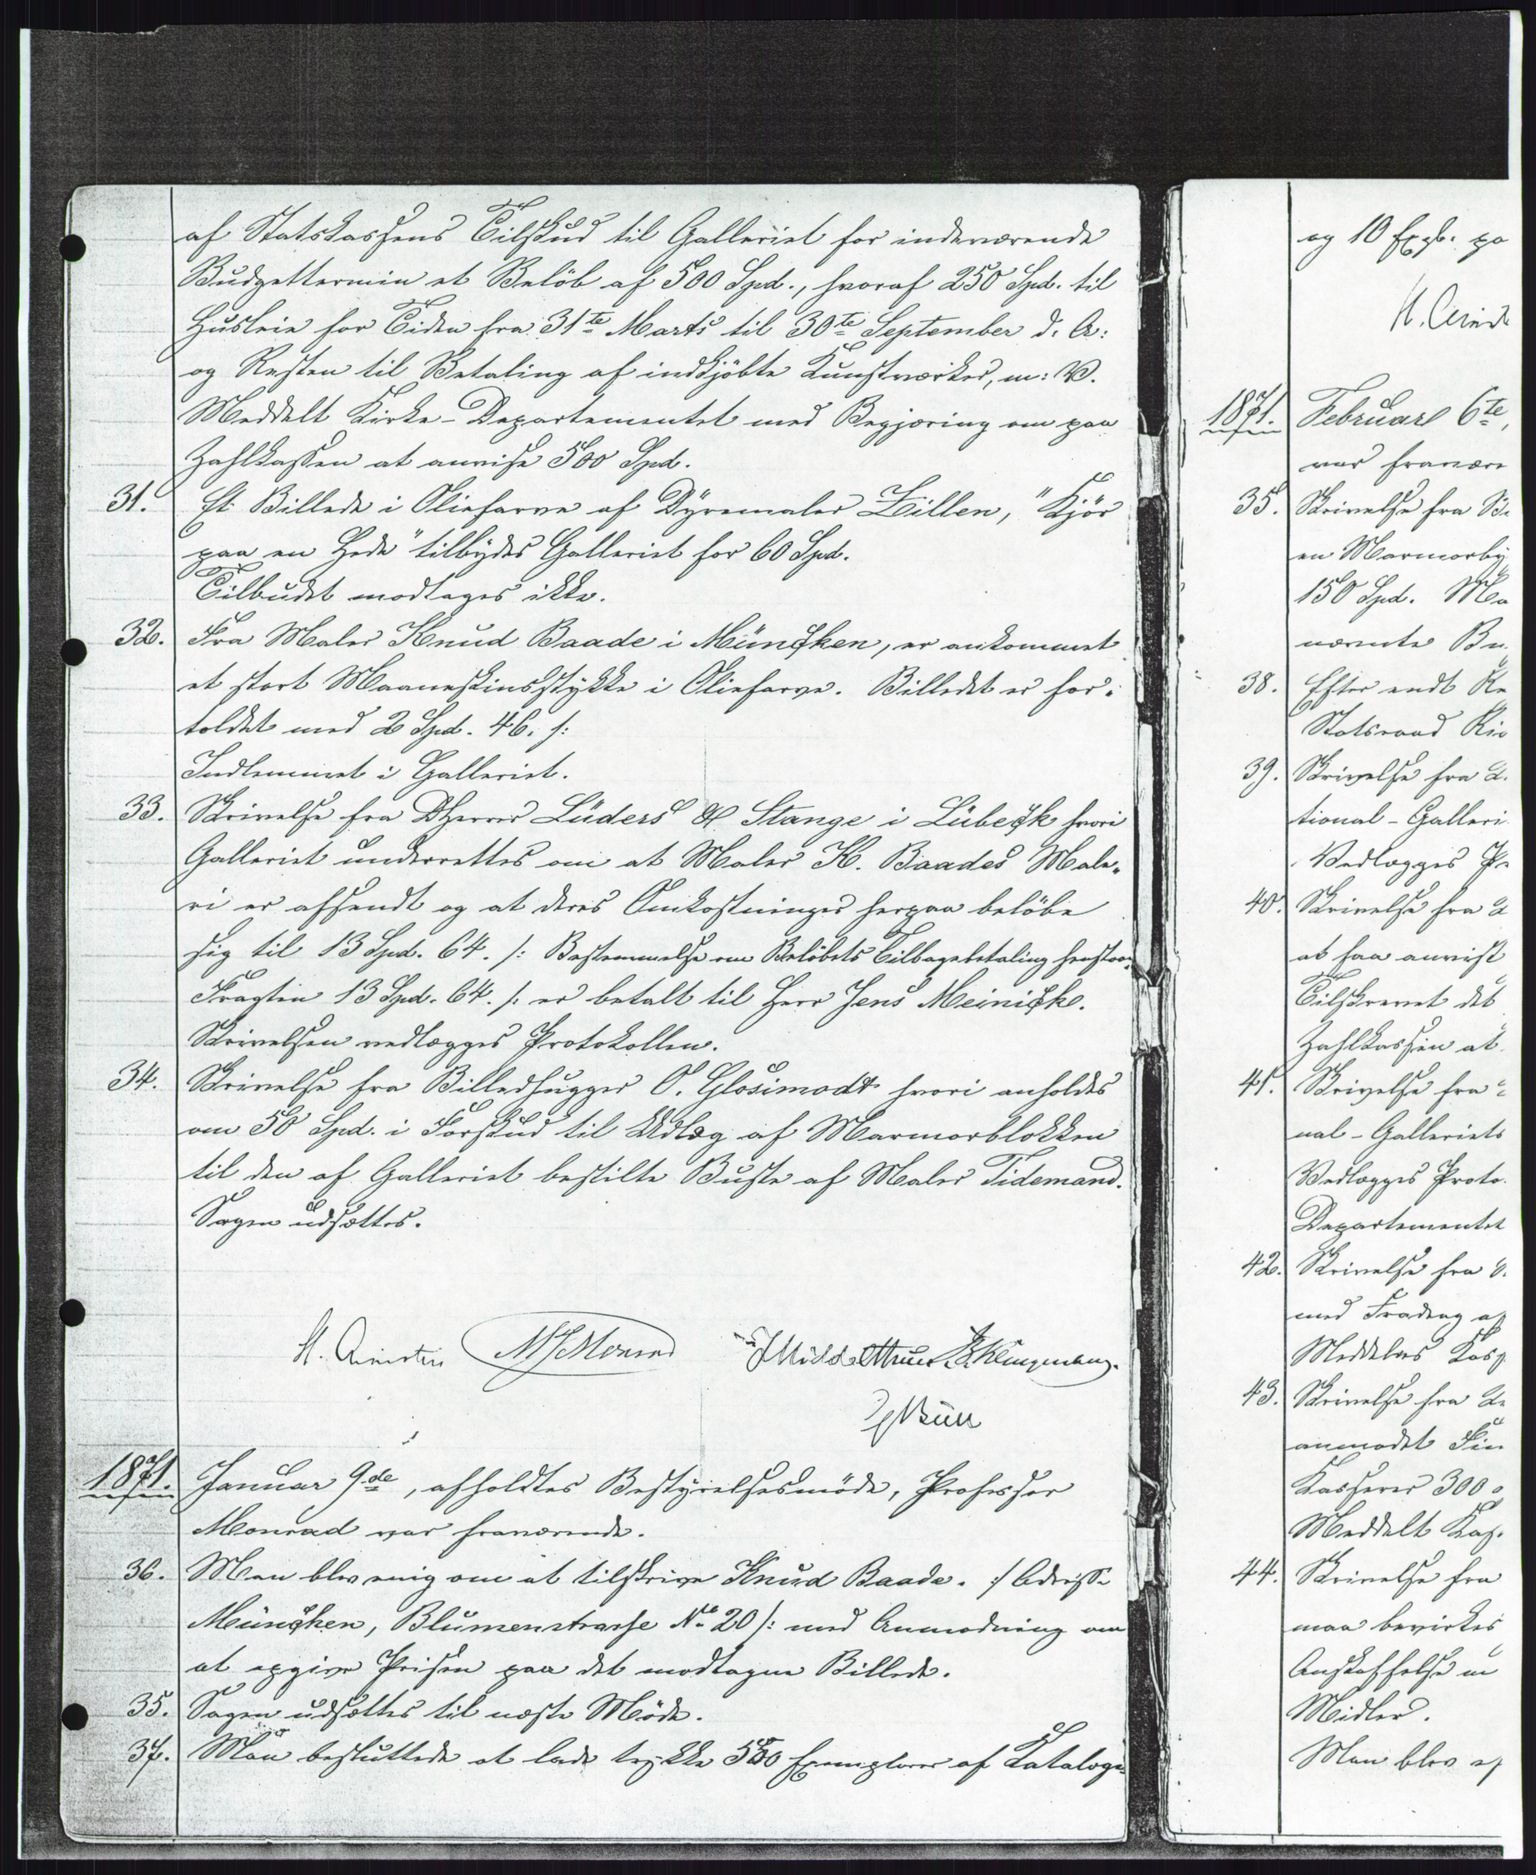 af Statskassens Tilskud til Galleriet for indeværende
Budgettermin et Beløb af 500 Spd., hvoraf 250 Spd. til
Husleie for Tiden fra 31te Marts til 30te September d: A:
og Resten til Betaling af indkjöbte Kunstværker, m: V.
Meddelt Kirke-Departementet med Begjæring om paa
Zahlkassen at anvise 500 Spd.
31. Et Billede i Oliefarve af Dyremaler Zillen, "Kjör
paa en Hede" tilbydes Galleriet for 60 Spd.
Tilbudet modtages ikke.
32. Fra Maler Knud Baade i München, er ankommet
et stort Maaneskinsstykke i Oliefarve. Billedet er for-
toldet med 2 Spd. 46. /:
Indlemmet i Galleriet.
33. Skrivelse fra DHerrer Lüders & Stange i Lübeck hvori
Galleriet underrettes om at Maler K. Baades Male-
ri er afsendt og at deres Omkostninger herpaa belöbe
sig til 13 Spd. 64. /: Bestemmelse om Belöbets Tilbagebetaling
Fragten 13 Spd. 64. /: er betalt til Herr Jens Meinick.
Skrivelsen vedlægges Protokollen.
34. Skrivelse fra Billedhugger O. Glosimodt hvori anholdes
om 50 Spd. i Forskud til Udlæg af Marmorblokken
til den af Galleriet bestilte Buste af Maler Tidemand.
Sagen udsættes.
MJMonrad
1871. Januar 9de, afholdtes Bestyrelsesmöde, Professor
Monrad var fraværende.
36. Man blev enig om at tilskrive Knud Baade. :/ Adresse
München, Blumenstrasse No 20 /: med Anmodning om
at opgive Prisen paa det modtagne Billede.
35. Sagen udsættes til næste Möde.
37. Man besluttede at lade trykke 550 Exemplarer af Kataloge
og 10 Expl. pa
1871. Februar 6te,
var fravære
35. Skrivelse fra Bi
en Marmorby
150 Spd. Ma
nævnte Bu
38. Efter endt Re
Statsraad Ri
39. Skrivelse fra
tional-Galleri
Vedlægges Pr
40. Skrivelse fra
at faa anvist
Tilskrevet det
Zahlkassen at
41. Skrivelse fra
nal-Galleriets
Vedlægges Proto
Departementet
42. Skrivelse fra
med Fradrag af
Meddeles Kass
43. Skrivelse fra
anmodet Fin
Kasserer 300
Meddelt Kas.
44. Skrivelse fra
maa bevirkes
Anskaffelse
Midler.
Man blev